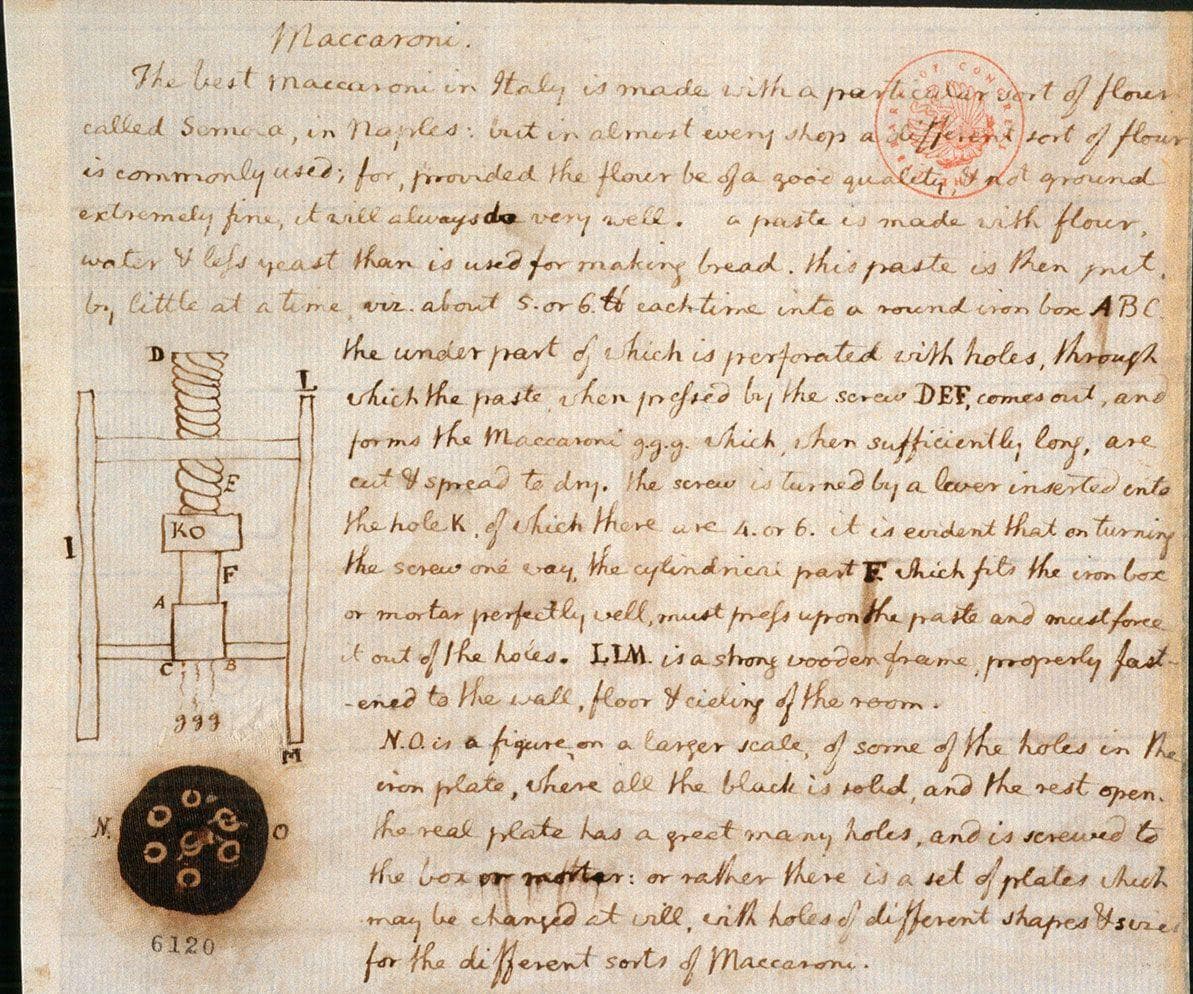 Maccaroni.
The best maccaroni in Italy is made with a particular sort of flour
called Semola, in Naples: but in almost every shop a different sort of flour
is commonly used; for, provided the flour be of a good quality, & not ground
extremely fine, it will always do very well. a paste is made with flour,
water & less yeast than is used for making bread. this paste is then put,
by little at a time, viz. about 5. or 6. ℔ each time into a round iron box ABC.
the under part of which is perforated with holes, through
which the paste, when pressed by the screw DEF, comes out, and
forms the Maccaroni g.g.g. which, when sufficiently long, are
cut & spread to dry. the screw is turned by a lever inserted into
the hole K, of which there are 4. or 6. it is evident that on turning
the screw one way, the cylindrical part F. which fits the iron box
or mortar perfectly well, must press upon the paste and must force
it out of the holes. LLM. is a strong wooden frame, properly fast-
-ened to the wall, floor & cieling of the room.
N.O. is a figure, on a larger scale, of some of the holes in the
iron plate, where all the black is solid, and the rest open.
the real plate has a great many holes, and is screwed to
the box or mortar: or rather there is a set of plates which
may be changed at will, with holes of different shapes & sizes
for the different sorts of Maccaroni.
D
L
E
KO
I
F
A
C B
ggg
M
N. O
6120